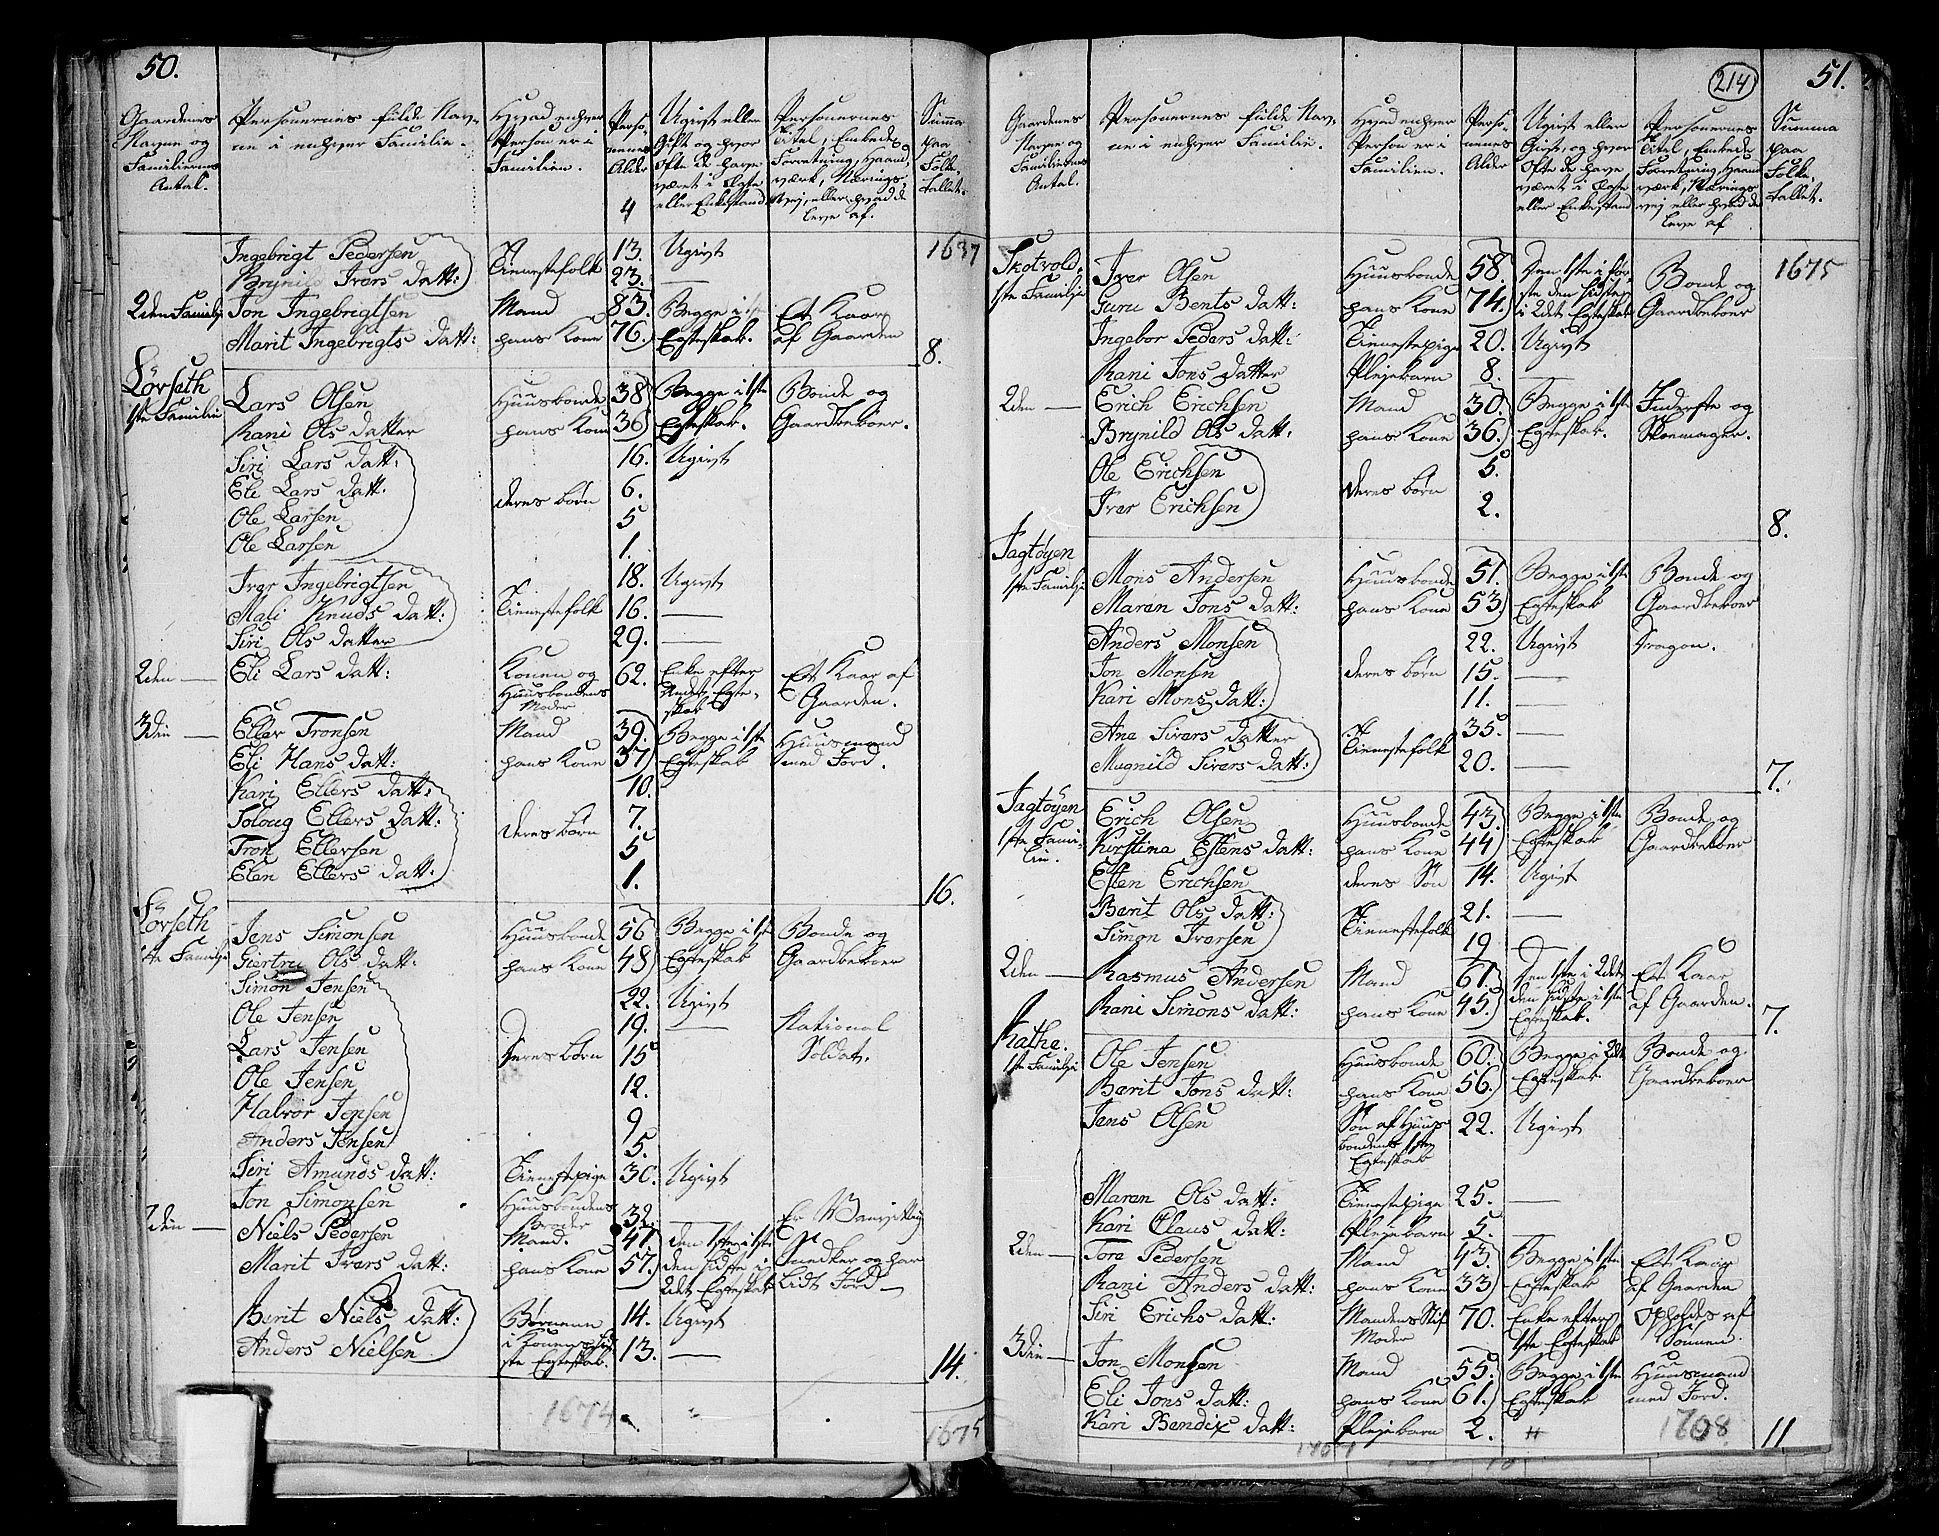 50.
Gaardenes Navne og Familiernes Antal.
Personernes fulde Navne i enhver Familie.
Hvad enhver Person er i Familien.
Personernes Alder
Ugivt eller Gift og hvor Ofte de have været i Ægte eller Enkestand
Personernes Titel, Embede, Forretning, Haandværk, Nærings Vej, eller hvad de leve af.
Summa paa Folketallet.
4
Ingebrigt Pedersen 13. Ugivt 1637
Brynild Ivers datt: Tienestefolk 23. —
2den Familje Jon Ingebrigtsen Mand 83. Begge i Et Kaar
Marit Ingebrigts datt: hans Kone 76. Egteskab. af Gaarden
8.
Lörseth
1ste Familie Lars Olsen Huusbonde 38 Begge i 1ste Bonde og
Rani Ols datter hans Kone 36 Egteskab. Gaardbeboer.
Siri Lars datt: 16. Ugivt
Eli Lars datt. deres børn 6.
Ole Larsen 5
Ole Larsen 1.
Iver Ingebrigtsen 18. Ugivt
Mali Knuds datt: Tienestefolk 16. —
Siri Ols datter 29. —
2den — Eli Lars datt: Konen og Huusbondens Moder 62. Enke efter Andet Egteskab Et Kaar af Gaarden.
3die — Eller Tronsen Mand 39. Begge i 1ste Huusmand
Eli Hans datt: hans Kone 37 Egteskab med Jord.
Kari Ellers datt: 10.
Soloug Ellers datt: deres børn 7.
Tron Ellersen 5
Elen Ellers datt: 1.
16.
Lörseth
1ste Familje Jens Simonsen Huusbonde 56 Begge i 1ste Bonde og
Giertru Ols datt: hans Kone 48 Egteskab Gaardbeboer
Simon Jensen 22. Ugivt
Ole Jensen 19. — National
Lars Jensen Deres børn 15 Soldat.
Ole Jensen 12.
Halvor Jensen 9
Anders Jensen 5.
Siri Amunds datt: Tienestepige 30. Ugivt
Jon Simonsen Huusbondens Broder 32. — Er
2den — Niels Pedersen Mand. 41. den 1ste i 1ste Snedker og har
Marit Ivers datt: hans Kone 57. den sidste i 2det Egteskab Lidt Jord —
Berit Niels datt: Børnene 14. Ugivt
Anders Nielsen i Konens første Egteskab. 13. —
14.
1674 1675
214 51.
Gaardenes Navne og Familiernes Antal.
Personernes fulde Navne i enhver Familie.
Hvad enhver Person er i Familien.
Personernes Alder
Ugivt eller Givt, og hvor Ofte de have været i Ægte eller Enkestand
Personernes Titel, Embede Forretning, Haandværk, Nærings vej eller hvad de leve af
Summa paa Folketallet.
Skotvold 1675
1ste Familje Iver Olsen Huusbonde 58. Den 1ste i første den sidste Bonde og
Guru Bents datt: hans Kone 74. i 2det Egteskab Gaardbeboer
Ingebor Peders datt: Tienestepige 20. Ugivt
Rani Jons datter Plejebarn 8. —
2den — Erich Erichsen Mand 30. Begge i 1ste Inderste og
Brynild Ols datt. hans Kone 36. Egteskab. Skoemager.
Ole Erichsen deres børn 5.
Iver Erichsen 2.
8.
Jagtöyen
1ste Familje Mons Andersen Huusbonde 51. Begge i 1ste Bonde og
Maren Jons datt: hans Kone 53. Egteskab Gaardbeboer
Anders Monsen 22. Ugivt Dragon.
Jon Monsen deres børn 15. —
Kari Mons datt: 11. —
Ane Sivers datter Tienestefolk 35. —
Mugnild Sivers datt: 20. —
7.
Jagtöyen
1ste Familie. Erich Olsen Huusbonde 43. Begge i 1ste Bonde og
Kirstina Estens datt: hans Kone 44 Egteskab Gaardbeboer
Esten Erichsen deres Søn 14. Ugivt
Berit Ols datt: Tienestefolk 21. —
Simon Iversen 19 —
2den — Rasmus Andersen Mand 61. Den 1ste i 2det Et Kaar
Rani Simons datt: hans Kone 45. den sidste i 1ste Egteskab. af Gaarden.
7.
Rathe.
1ste Familje Ole Jensen Huusbonde 60. Begge i 2det Bonde og
Berit Jons datt: hans Kone 56. Egteskab Gaardbeboer
Jens Olsen Søn af Huusbondens 1ste Egteskab 22. Ugivt
Maren Ols datt: Tienestepige 25. —
Kari Claus datt: Plejebarn 5. —
2den — Tore Pedersen Mand 43. Begge i 1ste Et Kaar
Rani Anders datt: hans Kone 33 Egteskab af Gaarden
Siri Erichs datt: Mandens Stifmoder 70. Enke efter 1ste Egteskab Opholdes af Sønnen.
3die — Jon Monsen Mand 55. Begge i 1ste Huusmand
Eli Jons datt: hans Kone 61. Egteskab med Jord.
Kari Bendix datt: Plejebarn 2. 1708 11